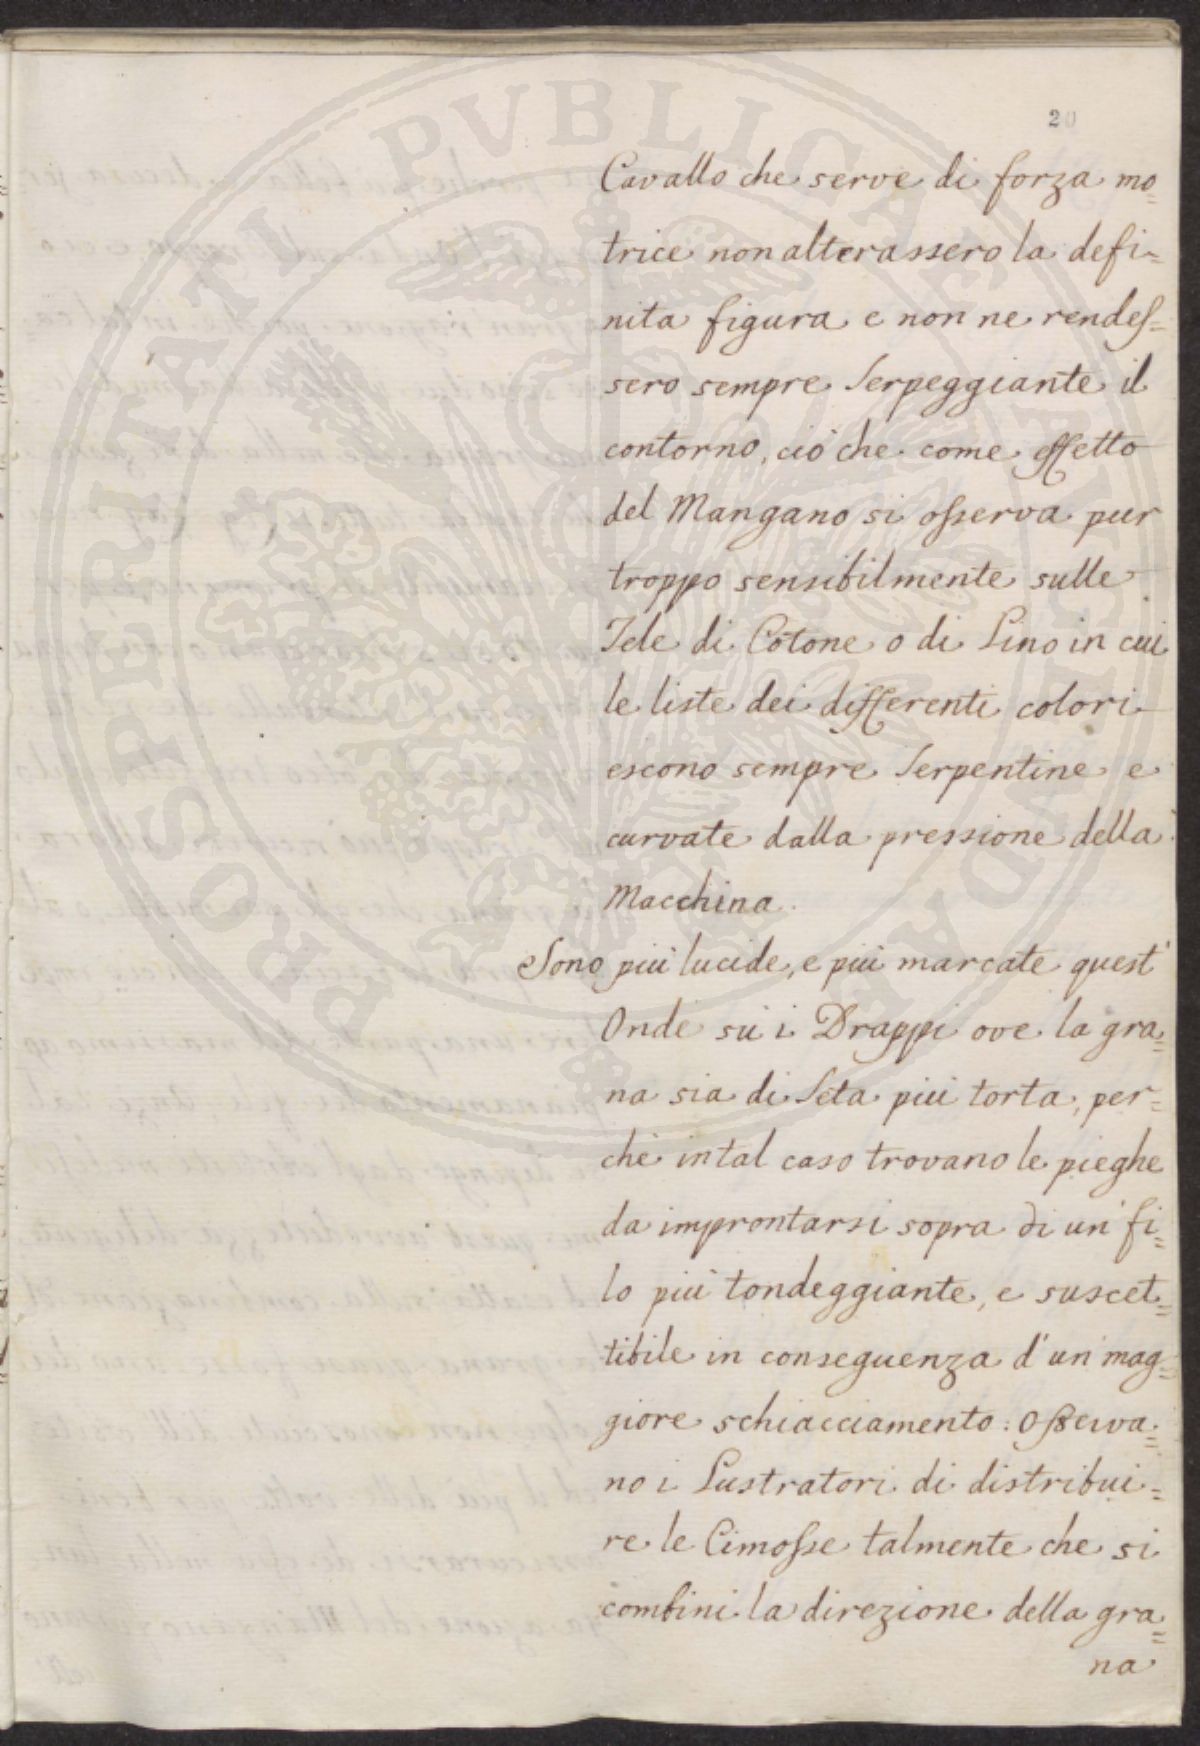 20
Cavallo che serve di forza mo=
trice non alterassero la defi=
nita figura e non ne rendeſ=
sero sempre Serpeggiante il
contorno, ciò che come effetto
del Mangano si oſserva pur
troppo sensibilmente sulle
Tele di Cotone o di Lino in cui
le liste dei differenti colori
escono sempre Serpentine e
curvate dalla pressione della
Macchina.
Sono più lucide, e più marcate quest'
Onde sù i Drappi ove la gra=
na sia di Seta più torta, per=
chè in tal caso trovano le pieghe
da improntarsi sopra di un fi=
lo più tondeggiante, e suscet=
tibile in conseguenza d'un mag=
giore schiacciamento: Oſserva=
no i Lustratori di distribui=
re le Cimoſse talmente che si
combini la direzione della gra=
na
PROSPERITATI PVBLICAE AVGENDAE